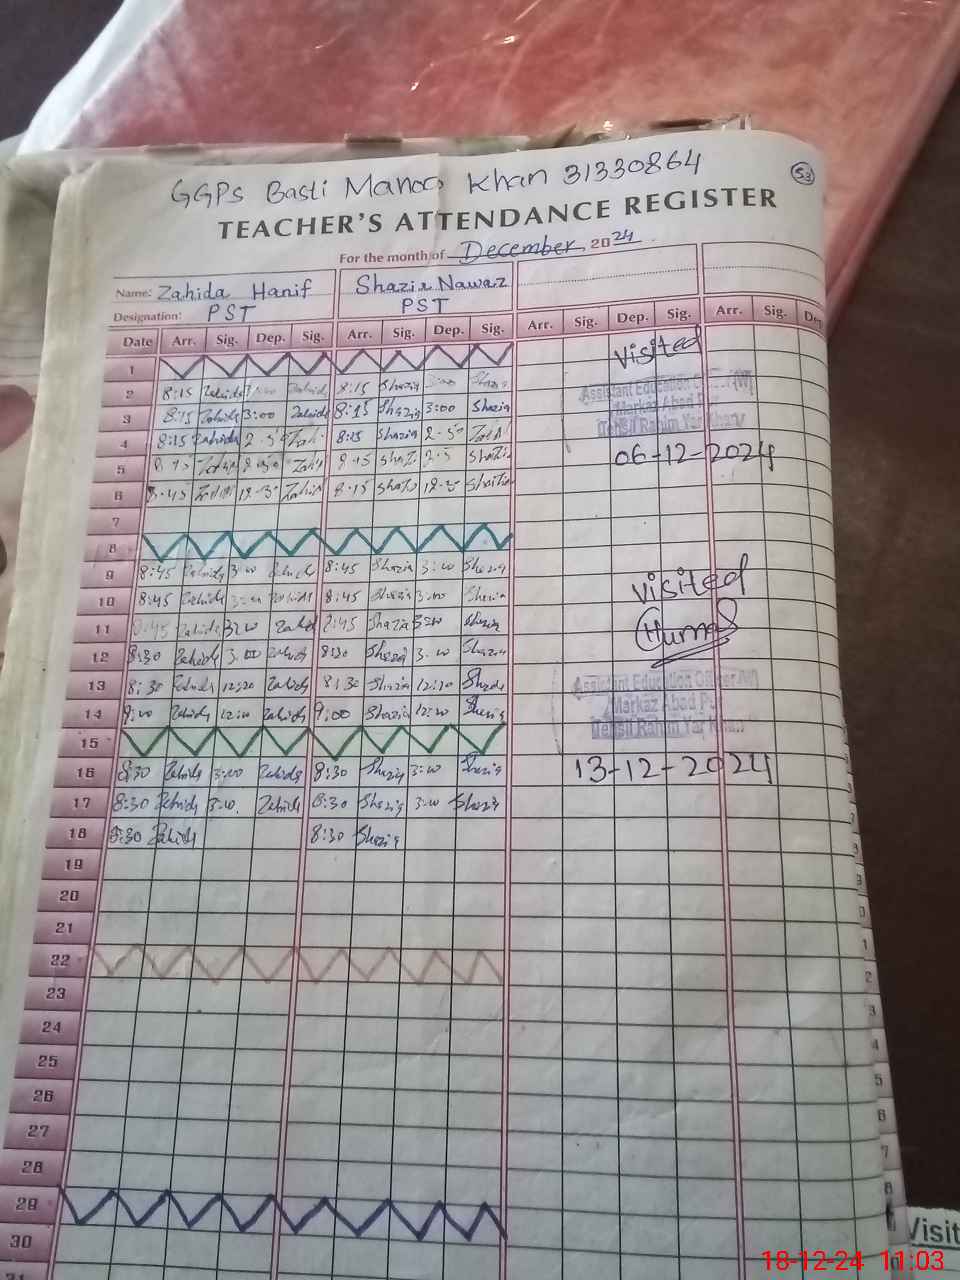 GGPS Basti Manoo Khan 31330864
53
TEACHER'S ATTENDANCE REGISTER
For the month of December 2024
Name: Zahida Hanif Shazia Nawaz
Designation: PST PST
Date Arr. Sig. Dep. Sig. Arr. Sig. Dep. Sig. Arr. Sig. Dep. Sig. Arr. Sig. Dep
1 Visited
2 8:15 Zahida Zahida 8:15 Shazia 3:00 Shazia
Assistant Education Officer (W)
3 8:15 Zahida 3:00 Zahida 8:15 Shazia 3:00 Shazia
Markaz Abad Pur
Tehsil Rahim Yar Khan
4 8:15 Zahida 8:15 Shazia
5 06-12-2024
6 8:15
7
8
9 8:45 Zahida 3:00 Zahida 8:45 Shazia 3:00 Shazia
Visited
10 8:45 Zahida Zahida 8:45 Shazia 3:00 Shazia
11 Zahida 3:00 8:45 Shazia 3:00 Shazia
12 8:30 Zahida 3:00 Zahida 8:30 Shazia 3:00 Shazia
13 8:30 Zahida 12:30 Zahida 8:30 Shazia Shazia
Assistant Education Officer (W)
Markaz Abad Pur
Tehsil Rahim Yar Khan
14 9:00 Zahida 12:00 Zahida 9:00 Shazia Shazia
15
16 8:30 Zahida 3:00 Zahida 8:30 Shazia 3:00 Shazia
13-12-2024
17 8:30 Zahida 3:00 Zahida 8:30 Shazia 3:00 Shazia
18 8:30 Zahida 8:30 Shazia
19
20
21
22
23
24
25
26
27
28
29
30
31
Visit
18-12-24 11:03